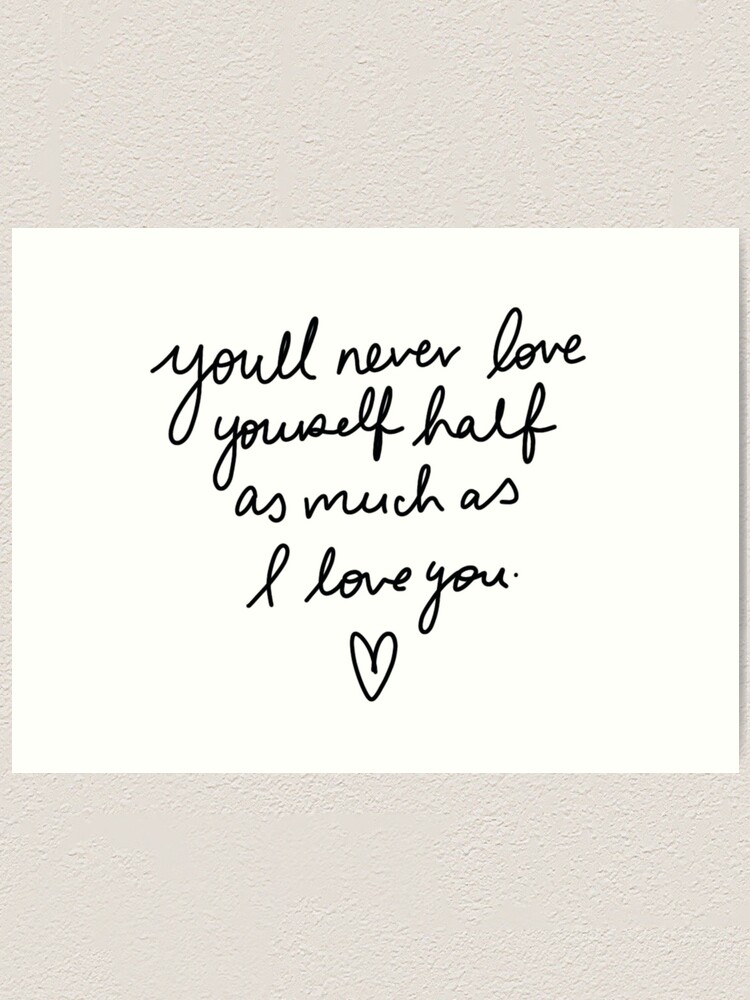 youll never love
yourself half
as much as
I love you.